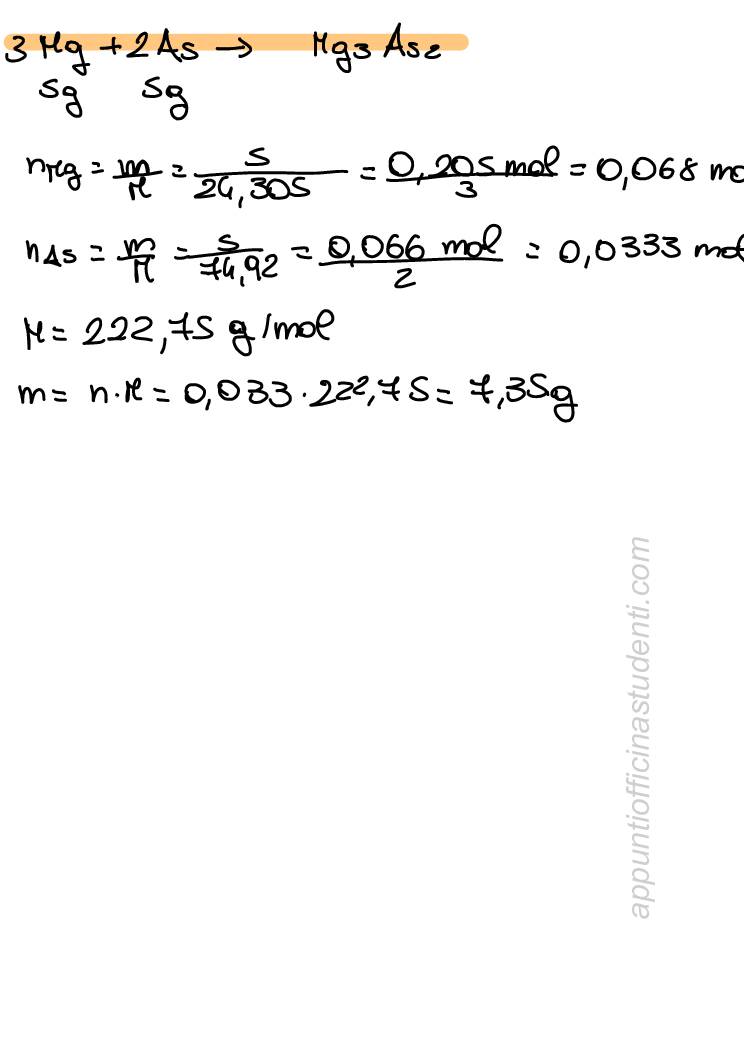 3 Mg + 2 As → Mg3 As2
5g 5g
nMg = m/M = 5/24,305 = 0,205 mol/3 = 0,068 mo
nAs = m/M = 5/74,92 = 0,066 mol/2 = 0,0333 mol
M = 222,75 g/mol
m = n·M = 0,033 · 222,75 = 7,35g
appuntiofficinastudenti.com